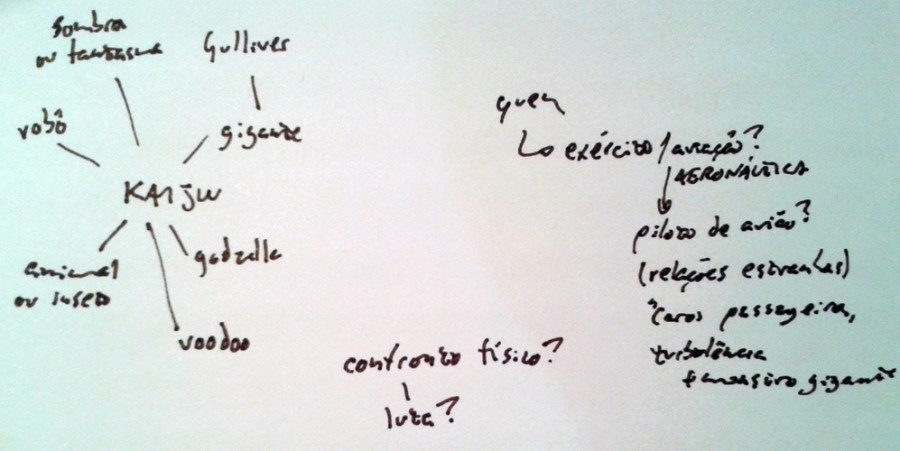 Sombra
ou fantasma
Gulliver
robô
gigante
KAIJU
animal
ou inseto
godzilla
voodoo
confronto físico?
luta?
quem
exército / aviação?
AERONÁUTICA
piloto de avião?
(relações estranhas)
"Caros passageiros,
turbulência
fantasma gigante